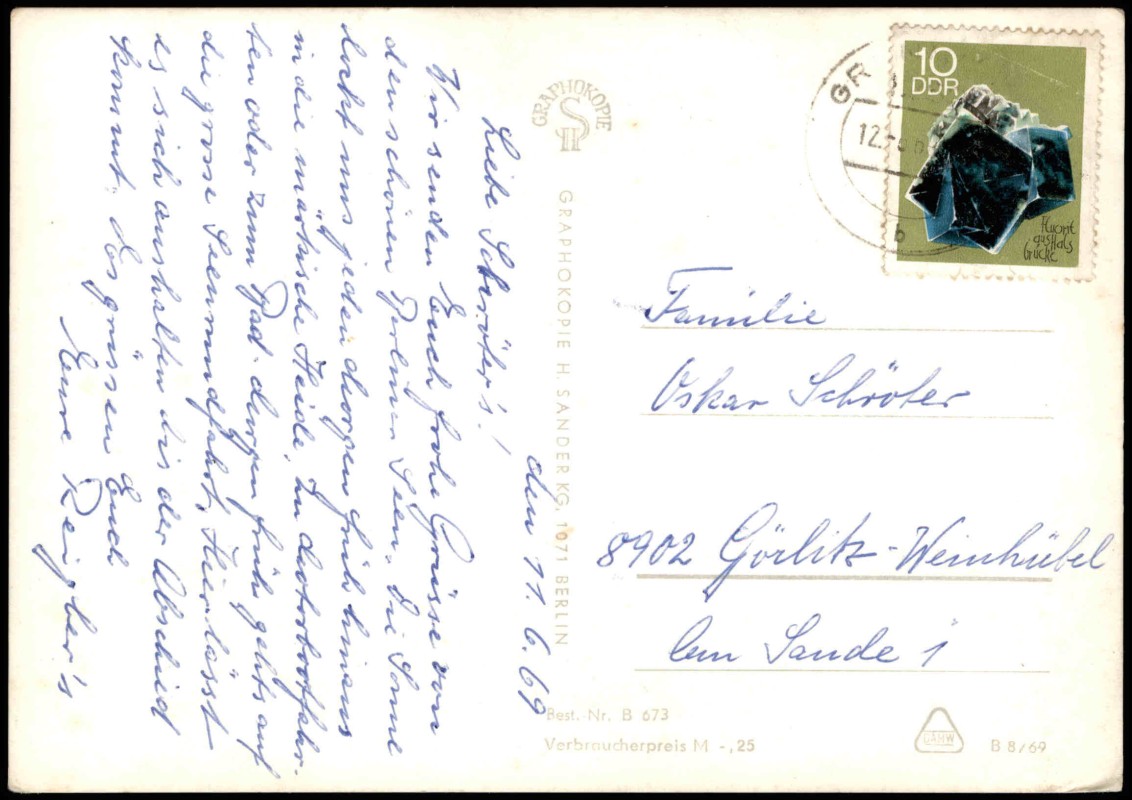 den 11. 6. 69
Liebe Schröter's!
Wir senden Euch frohe Grüsse von
den schönen Berliner Seen. Die Sonne
lockt uns jeden Morgen früh hinaus
in die märkische Heide, zu Motorbootfahr-
ten oder zum Bad. Morgen früh gehts auf
die grosse Seenrundfahrt. Hier lässt
es sich aushalten bis der Abschied
kommt. Es grüssen Euch
Eure
GRAPHOKOPIE
H S
GRAPHOKOPIE H. SANDER KG, 1071 BERLIN
10
DDR
Fluorit
aus Hals
brücke
GR
12.-6.6
b
Familie
Oskar Schröter
8902 Görlitz-Weinhübel
Am Sande 1
Best. Nr. B 673
Verbraucherpreis M -,25
B 8/69